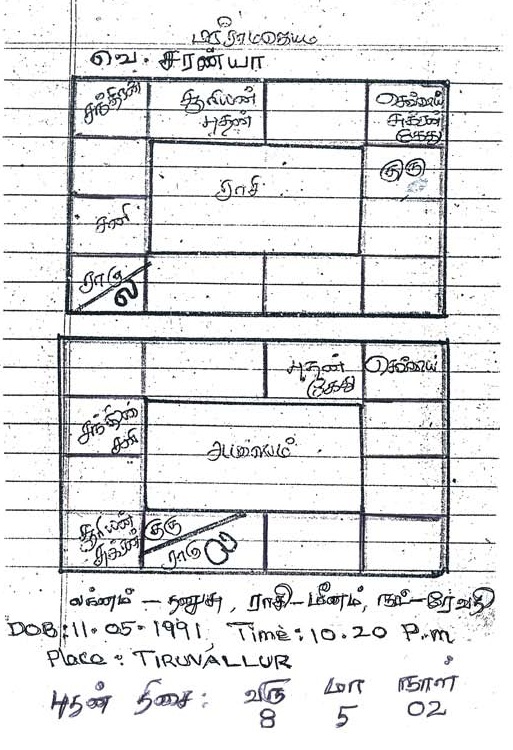 வெ. சரண்யா
சந்திரன்
சூரியன்
புதன்
செவ்வாய்
சுக்ரன்
கேது
குரு
ராசி
சனி
ராகு
ல
புதன்
கேது
செவ்வாய்
சந்திரன்
சனி
சூரியன்
சுக்ரன்
குரு
ராகு
ல
லக்னம் - தனுசு, ராசி-மீனம், நட்-ரேவதி
DOB:11.05.1991. Time:10.20 P.m
Place: TIRUVALLUR
புதன் திசை: வரு மா நாள்
8 5 02